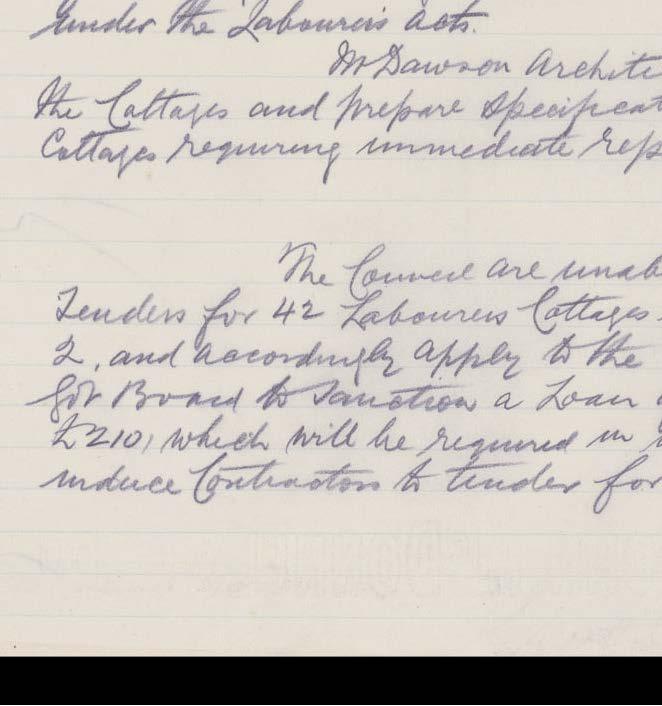 under the Labourers Acts.
Mr Dawson Archite
the Cottages and prepare Specificat
Cottages requiring immediate rep
The Council are unab
Tenders for 42 Labourers Cottages
2, and accordingly apply to the
Gov Board to Sanction a Loan
£210, which will be required in
induce Contractors to tender for